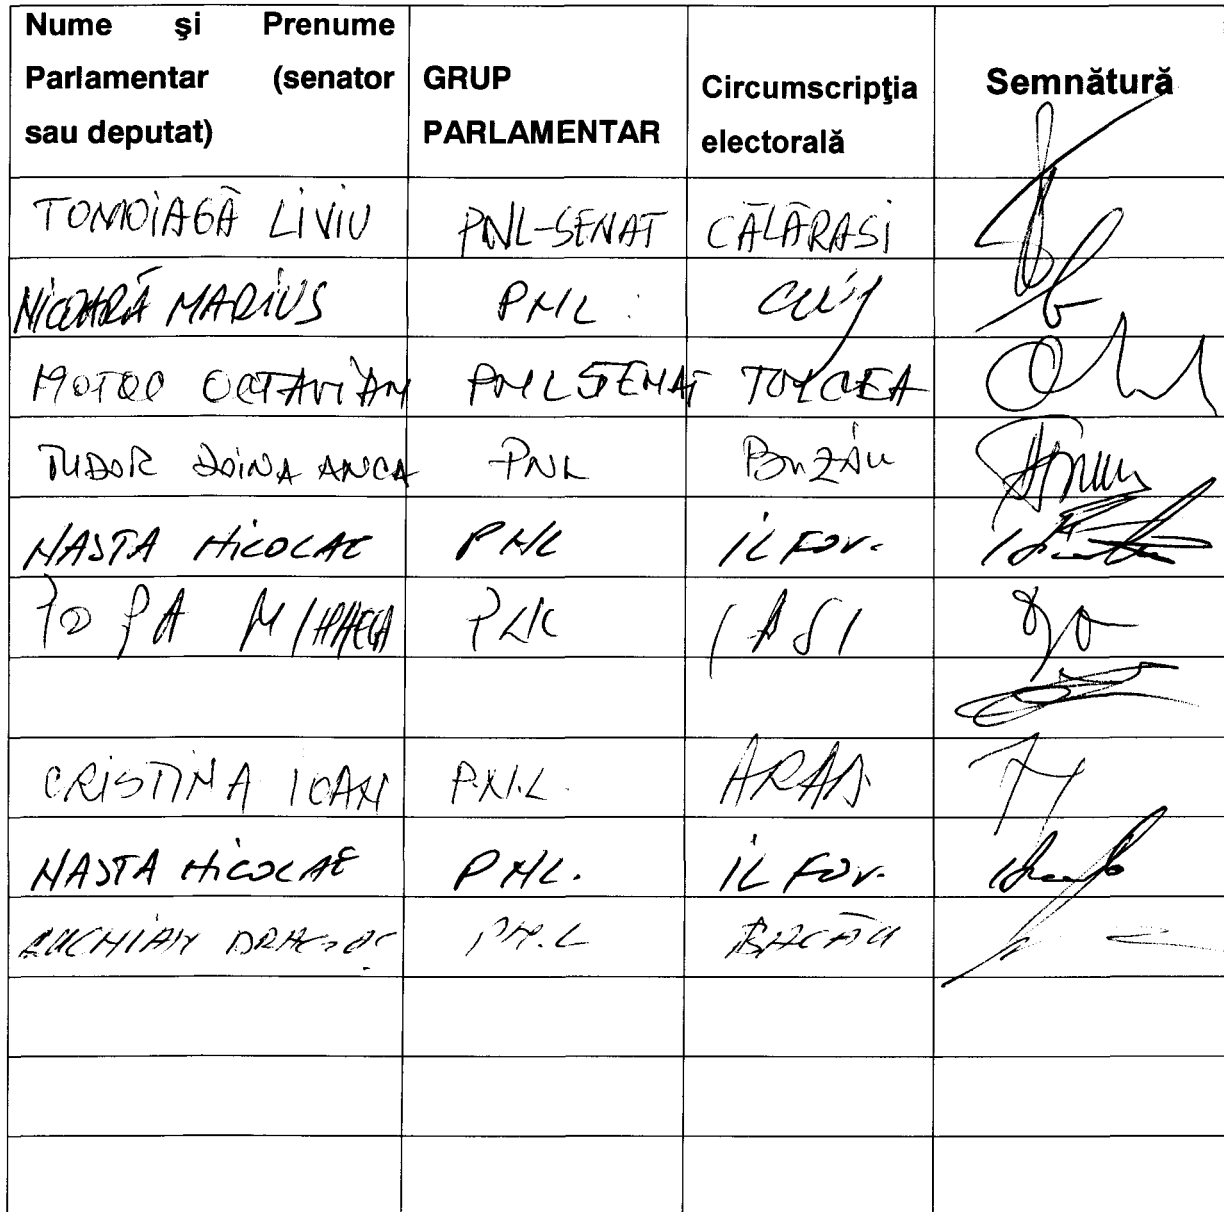 Nume şi Prenume
Parlamentar (senator
sau deputat)
GRUP
PARLAMENTAR
Circumscripţia
electorală
Semnătură
TOMOIAGĂ LIVIU PNL-SENAT CĂLĂRASI
NICOARĂ MARIUS PNL CLUJ
MOTOC OCTAVIAN PNL SENAT TULCEA
TUDOR DOINA ANCA PNL BUZĂU
NASTA NICOLAE PNL ILFOV.
POPA MIHAELA PNL IASI
CRISTINA IOAN P.N.L. ARAD
NASTA NICOLAE PNL. ILFOV.
LUCHIAN DRAGOȘ PN.L BACĂU